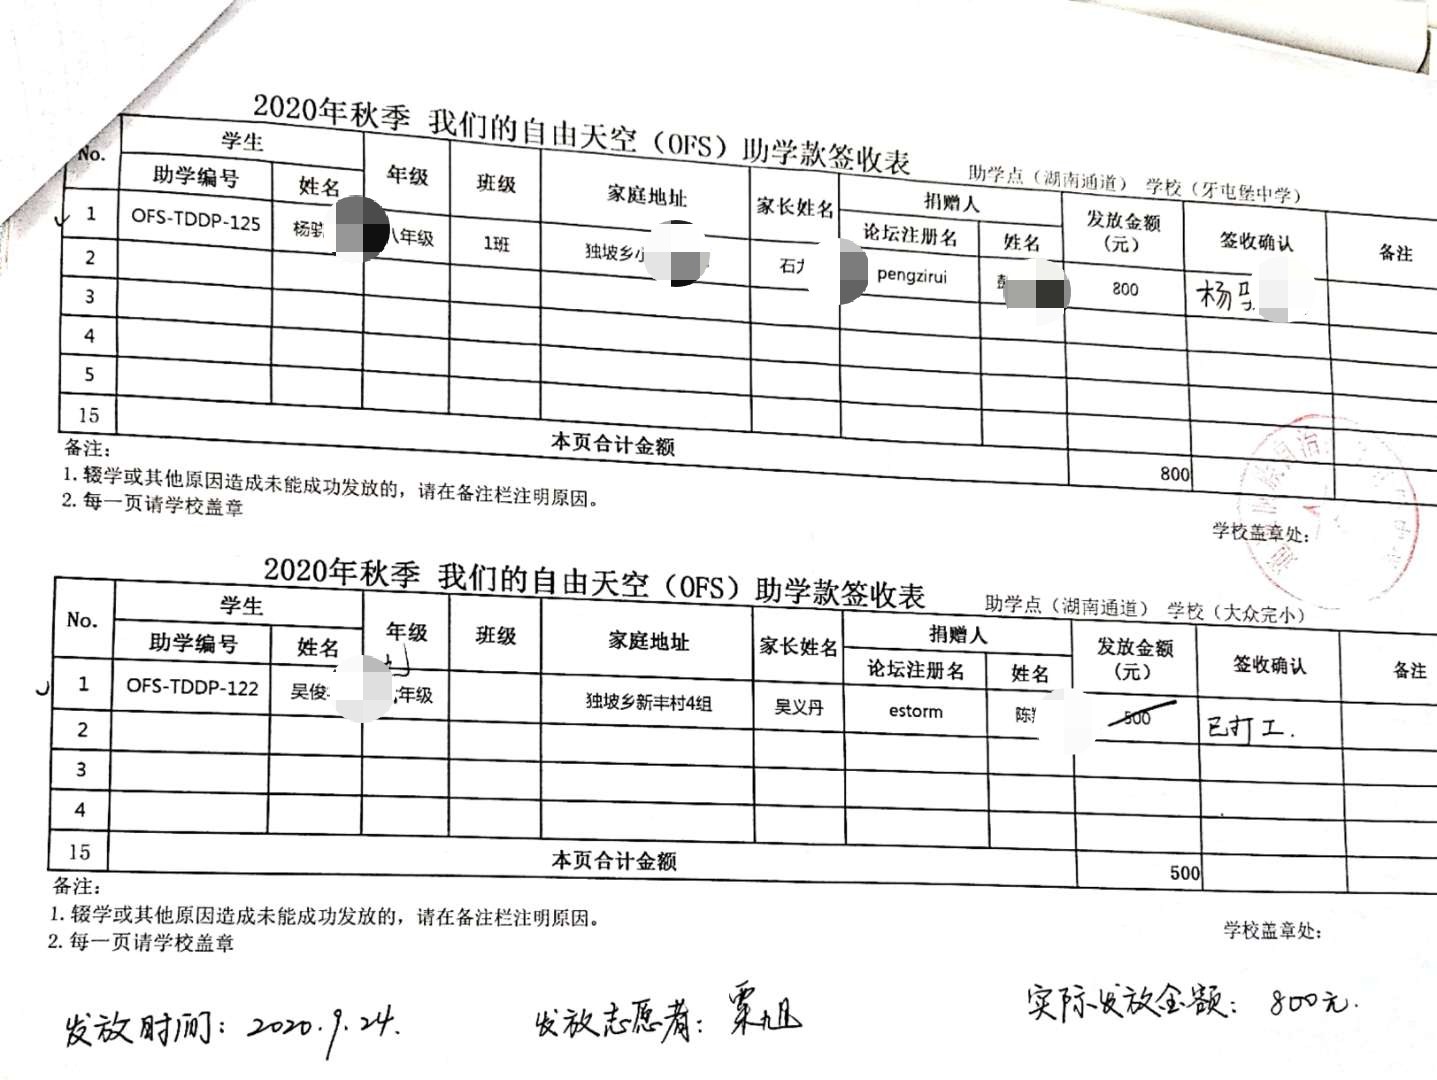 2020年秋季 我们的自由天空（OFS）助学款签收表 助学点（湖南通道） 学校（牙屯堡中学）
No. 学生 年级 班级 家庭地址 家长姓名 捐赠人 发放金额（元） 签收确认 备注
助学编号 姓名 论坛注册名 姓名
1 OFS-TDDP-125 杨 八年级 1班 独坡乡 石 pengzirui 800 杨
2
3
4
5
15 本页合计金额 800
备注：
1. 辍学或其他原因造成未能成功发放的，请在备注栏注明原因。
2. 每一页请学校盖章
学校盖章处：
2020年秋季 我们的自由天空（OFS）助学款签收表 助学点（湖南通道） 学校（大众完小）
No. 学生 年级 班级 家庭地址 家长姓名 捐赠人 发放金额（元） 签收确认 备注
助学编号 姓名 论坛注册名 姓名
1 OFS-TDDP-122 吴俊 年级 独坡乡新丰村4组 吴义丹 estorm 陈 500 已打工.
2
3
4
15 本页合计金额 500
备注：
1. 辍学或其他原因造成未能成功发放的，请在备注栏注明原因。
2. 每一页请学校盖章
学校盖章处：
发放时间：2020.9.24. 发放志愿者：粟旭 实际发放金额：800元.